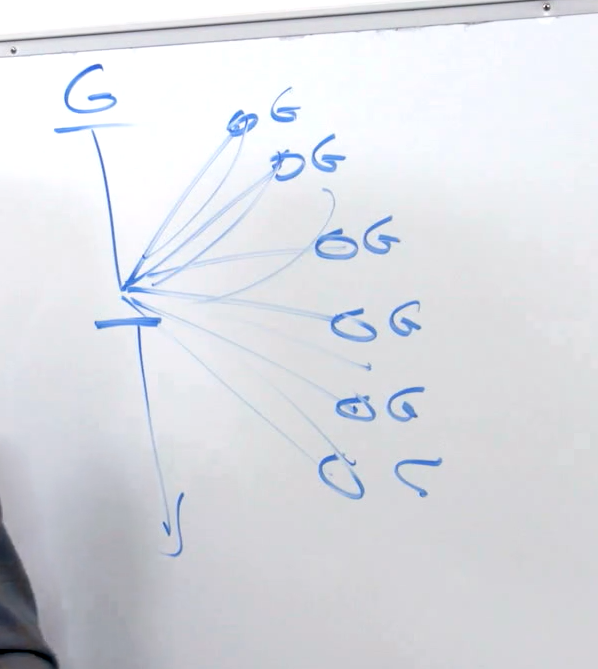 G
G
G
G
G
G